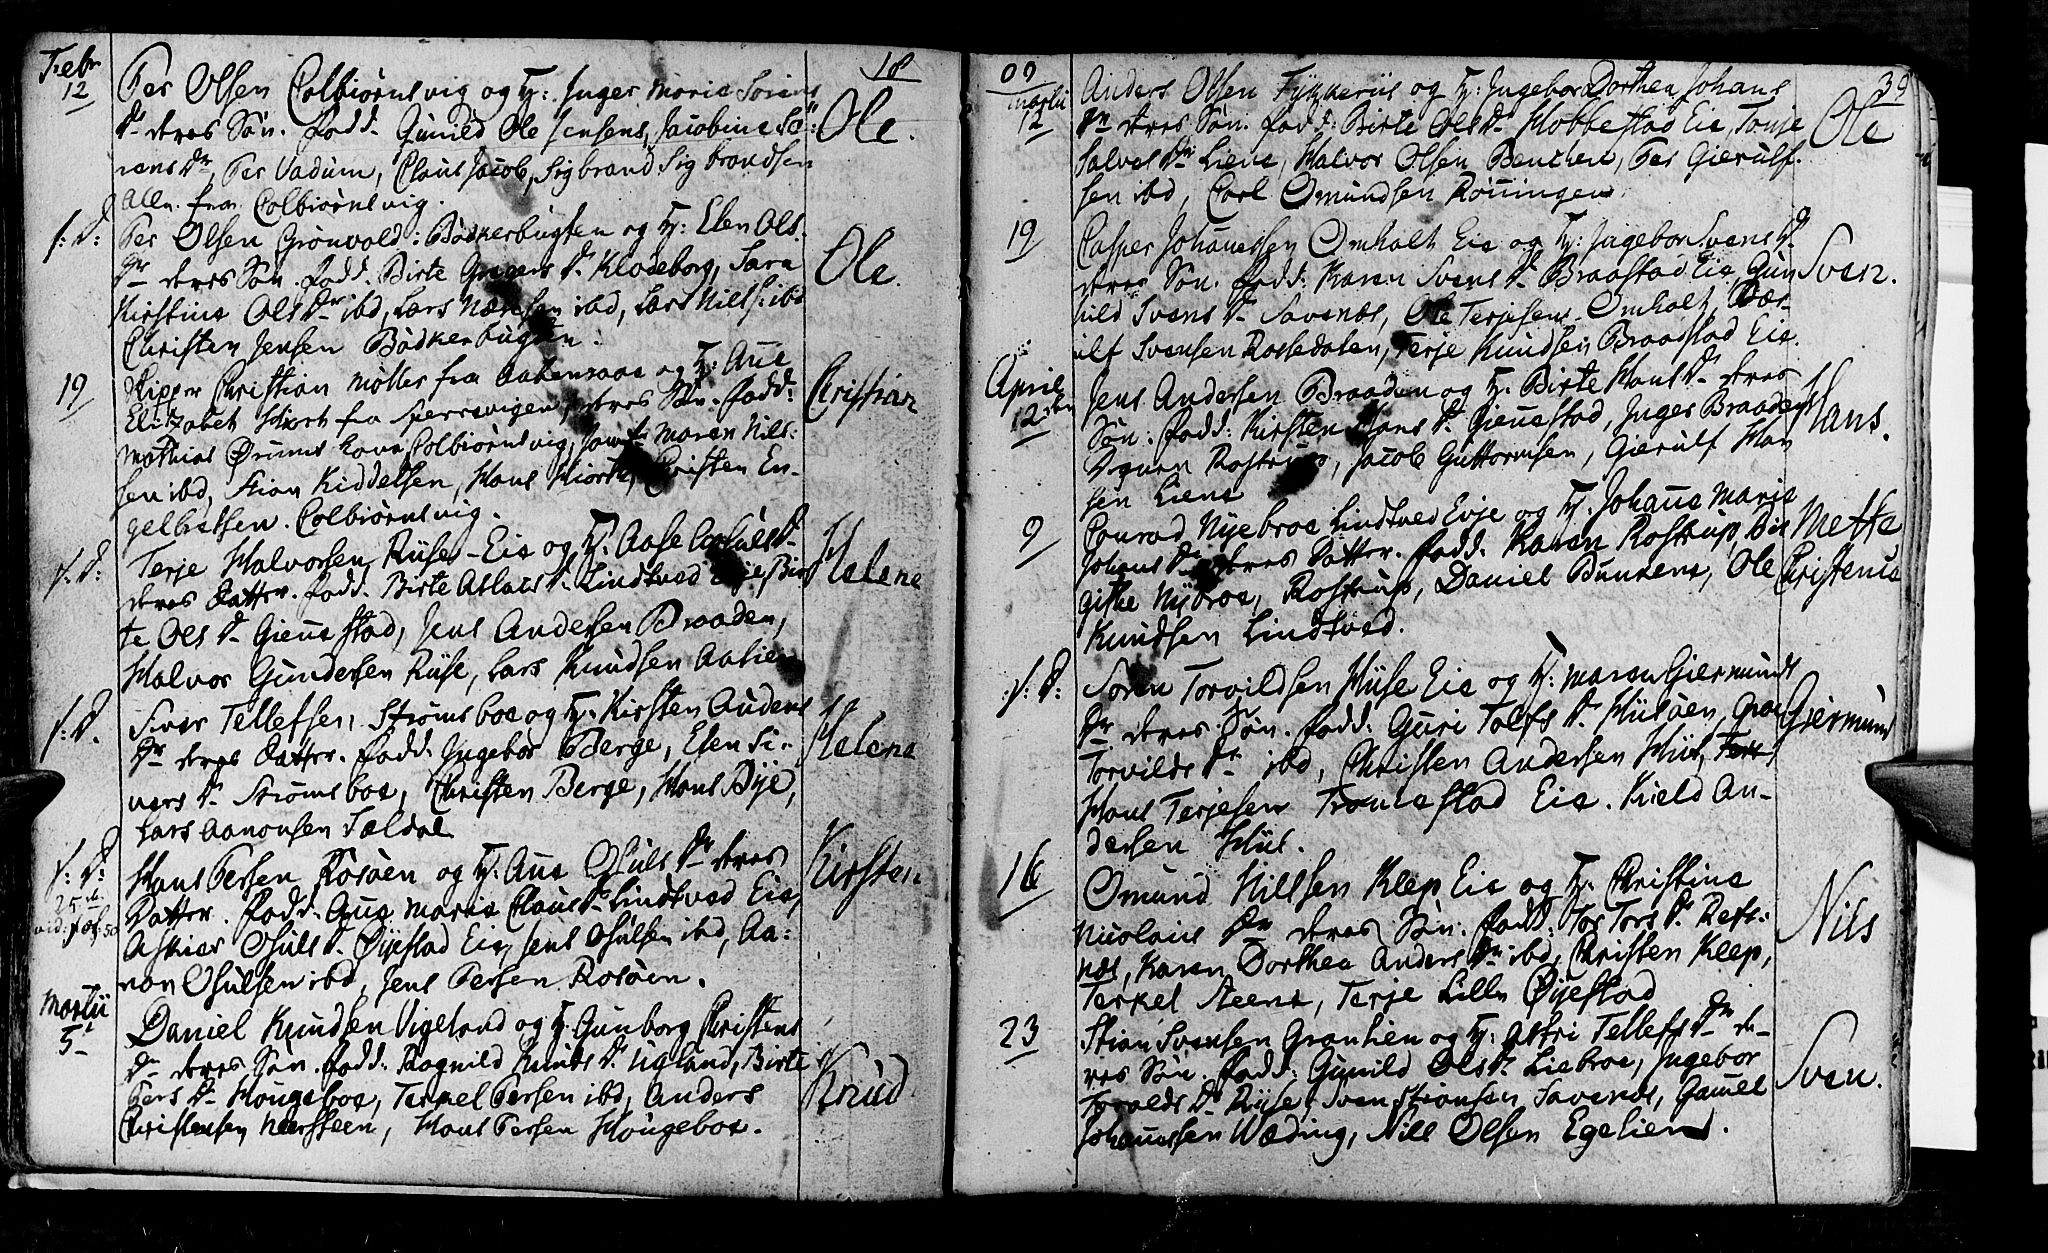 Febr
12
18
Per Olsen Colbiørnsvig og H: Inger Maria Sørens
Dr deres Søn. fadd. Gunild Ole Jensens, Jacobine Sø-
rens Dr, Per Vadum, Claus Jacob, Sigbrand Sigbrandsen
alle fra Colbiørnsvig.
Ole.
s: D:
Per Olsen Grønvold: Bødkerbugten og H: Elen Ols
Dr deres Søn. fadd. Birte Gregers Dr Klodeborg, Sara
Kirstine Ols Dr ibd, Lars ibd, Lars Nills: ibd
Christen Jensen Bødkerbugten.
Ole.
19
Skipper Christian Møller fra Aabenraae og H: Ane
Elizabet Hiort fra deres Søn. fadd:
Mathias Ørums Kone Colbiørnsvig, Maren Nils:
sen ibd, Stian Kiddelsen, Hans Hiort, Christen En-
gelbretsen. Colbiørnsvig.
Christian
s: D:
Terje Halvorsen Rise-Eie og H: Aase Aslaks Dr
deres Datter. fadd. Birte Aslaks Dr Lindtved Eje, Bir
te Ols Dr Gienestad, Jens Andersen Braaden,
Halvor Gundersen Riise, Lars Knudsen Aalien
Helene
s: D.
Siver Tellefsen Strømsboe og H: Kirsten Anders
Dr deres Datter. fadd. Ingebor Berge, Elen Si-
vers Dr Strømsboe, Christen Berge, Hans Bye,
Lars Aanonsen Sældal
Helene
s: D:
25de
vid: fol: 50
Hans Persen Rosøen og H: Ane Osuls Dr deres
Datter. fadd: Ane Maria Claus Dr Lindtved Eie,
Osuls Dr Øyestad Eie, Jens Osulsen ibd, Aa:
non Osulsen ibd, Jens Persen Rosøen.
Kirsten
Martii
5t
Daniel Knudsen Vigeland og H: Gunborg Christens
Dr deres Søn. fadd: Ragnild Knuds Dr Ugland, Birte
Pers Dr Hougeboe, Terkel Persen ibd, Anders
Christensen Neersteen, Hans Persen Hougeboe.
Knud
09
39
Martii
12
Anders Olsen og H: Ingebor Dorthea Johans
Dr deres Søn. fadd: Birte Ols Dr Hobbestad Eie, Tonje
Salves Dr Liene, Halvor Olsen Per Gierulf-
sen ibd, Carl Omundsen Rønningen.
Ole
19
Casper Johannessen Omholt Eie og H: Ingebor Svens Dr
deres Søn. fadd: Karen Svens Dr Braastad Eie, Gun
hild Svens Dr Savenes, Ole Terjesen Omholt,
ulf Svensen Rossedalen, Terje Knudsen Braastad Eie.
Sven.
April
12den
Jens Andersen Braaden og H. Birte Hans Dr deres
Søn: fadd: Kirsten Hans Dr Gienestad, Inger Braaden
Rostrup, Jacob Guttormsen, Gierulf Han
sen Liene
Hans.
9
Conrad Nyebroe Lindtved Eje og H. Johanne Marie
Johans Dr deres Datter. fadd. Karen Rostrup, Bir
gitte Nybroe, Rostrup, Daniel Ole
Knudsen Lindtved.
Mette
Christence
s: D:
Søren Torvildsen Huse Eie og H: Maren Giermunds
Dr deres Søn. fadd: Guri Tolfs Dr Husøen,
Torvilds Dr ibd, Christen Andersen Huus,
Hans Terjesen Tromestad Eie. Kield An-
dersen Huus.
Giermund
16
Omund Nillsen Klep Eie og H. Christine
Nicolais Dr deres Søn. fadd: Tors Dr Refs:
næs, Karen Dorthea Anders Dr ibd, Christen Kleep,
Terkel Steene, Terje Lille Øyestad
Nils
23
Stian Svensen Granlien og H: Astri Tellefs Dr de-
res Søn. fadd: Gunild Ols Dr Lieboe, Ingebor
Torvolds Dr Riise, Sven Stiansen, Savenes, Gamel
Johannessen Wæding, Nils Olsen Egelien.
Sven.